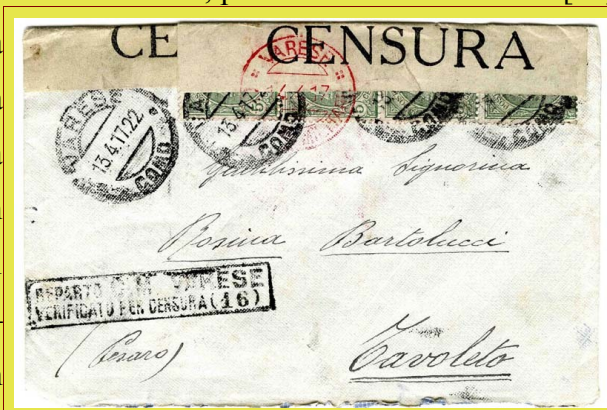 CE CENSURA
VARESE
13.4.17.22
COMO
VARESE
13.4.17
COMO
Gentilissima Signorina
Rosina Bartolucci
REPARTO VARESE
VERIFICATO PER CENSURA (16)
(Pesaro) Tavoleto